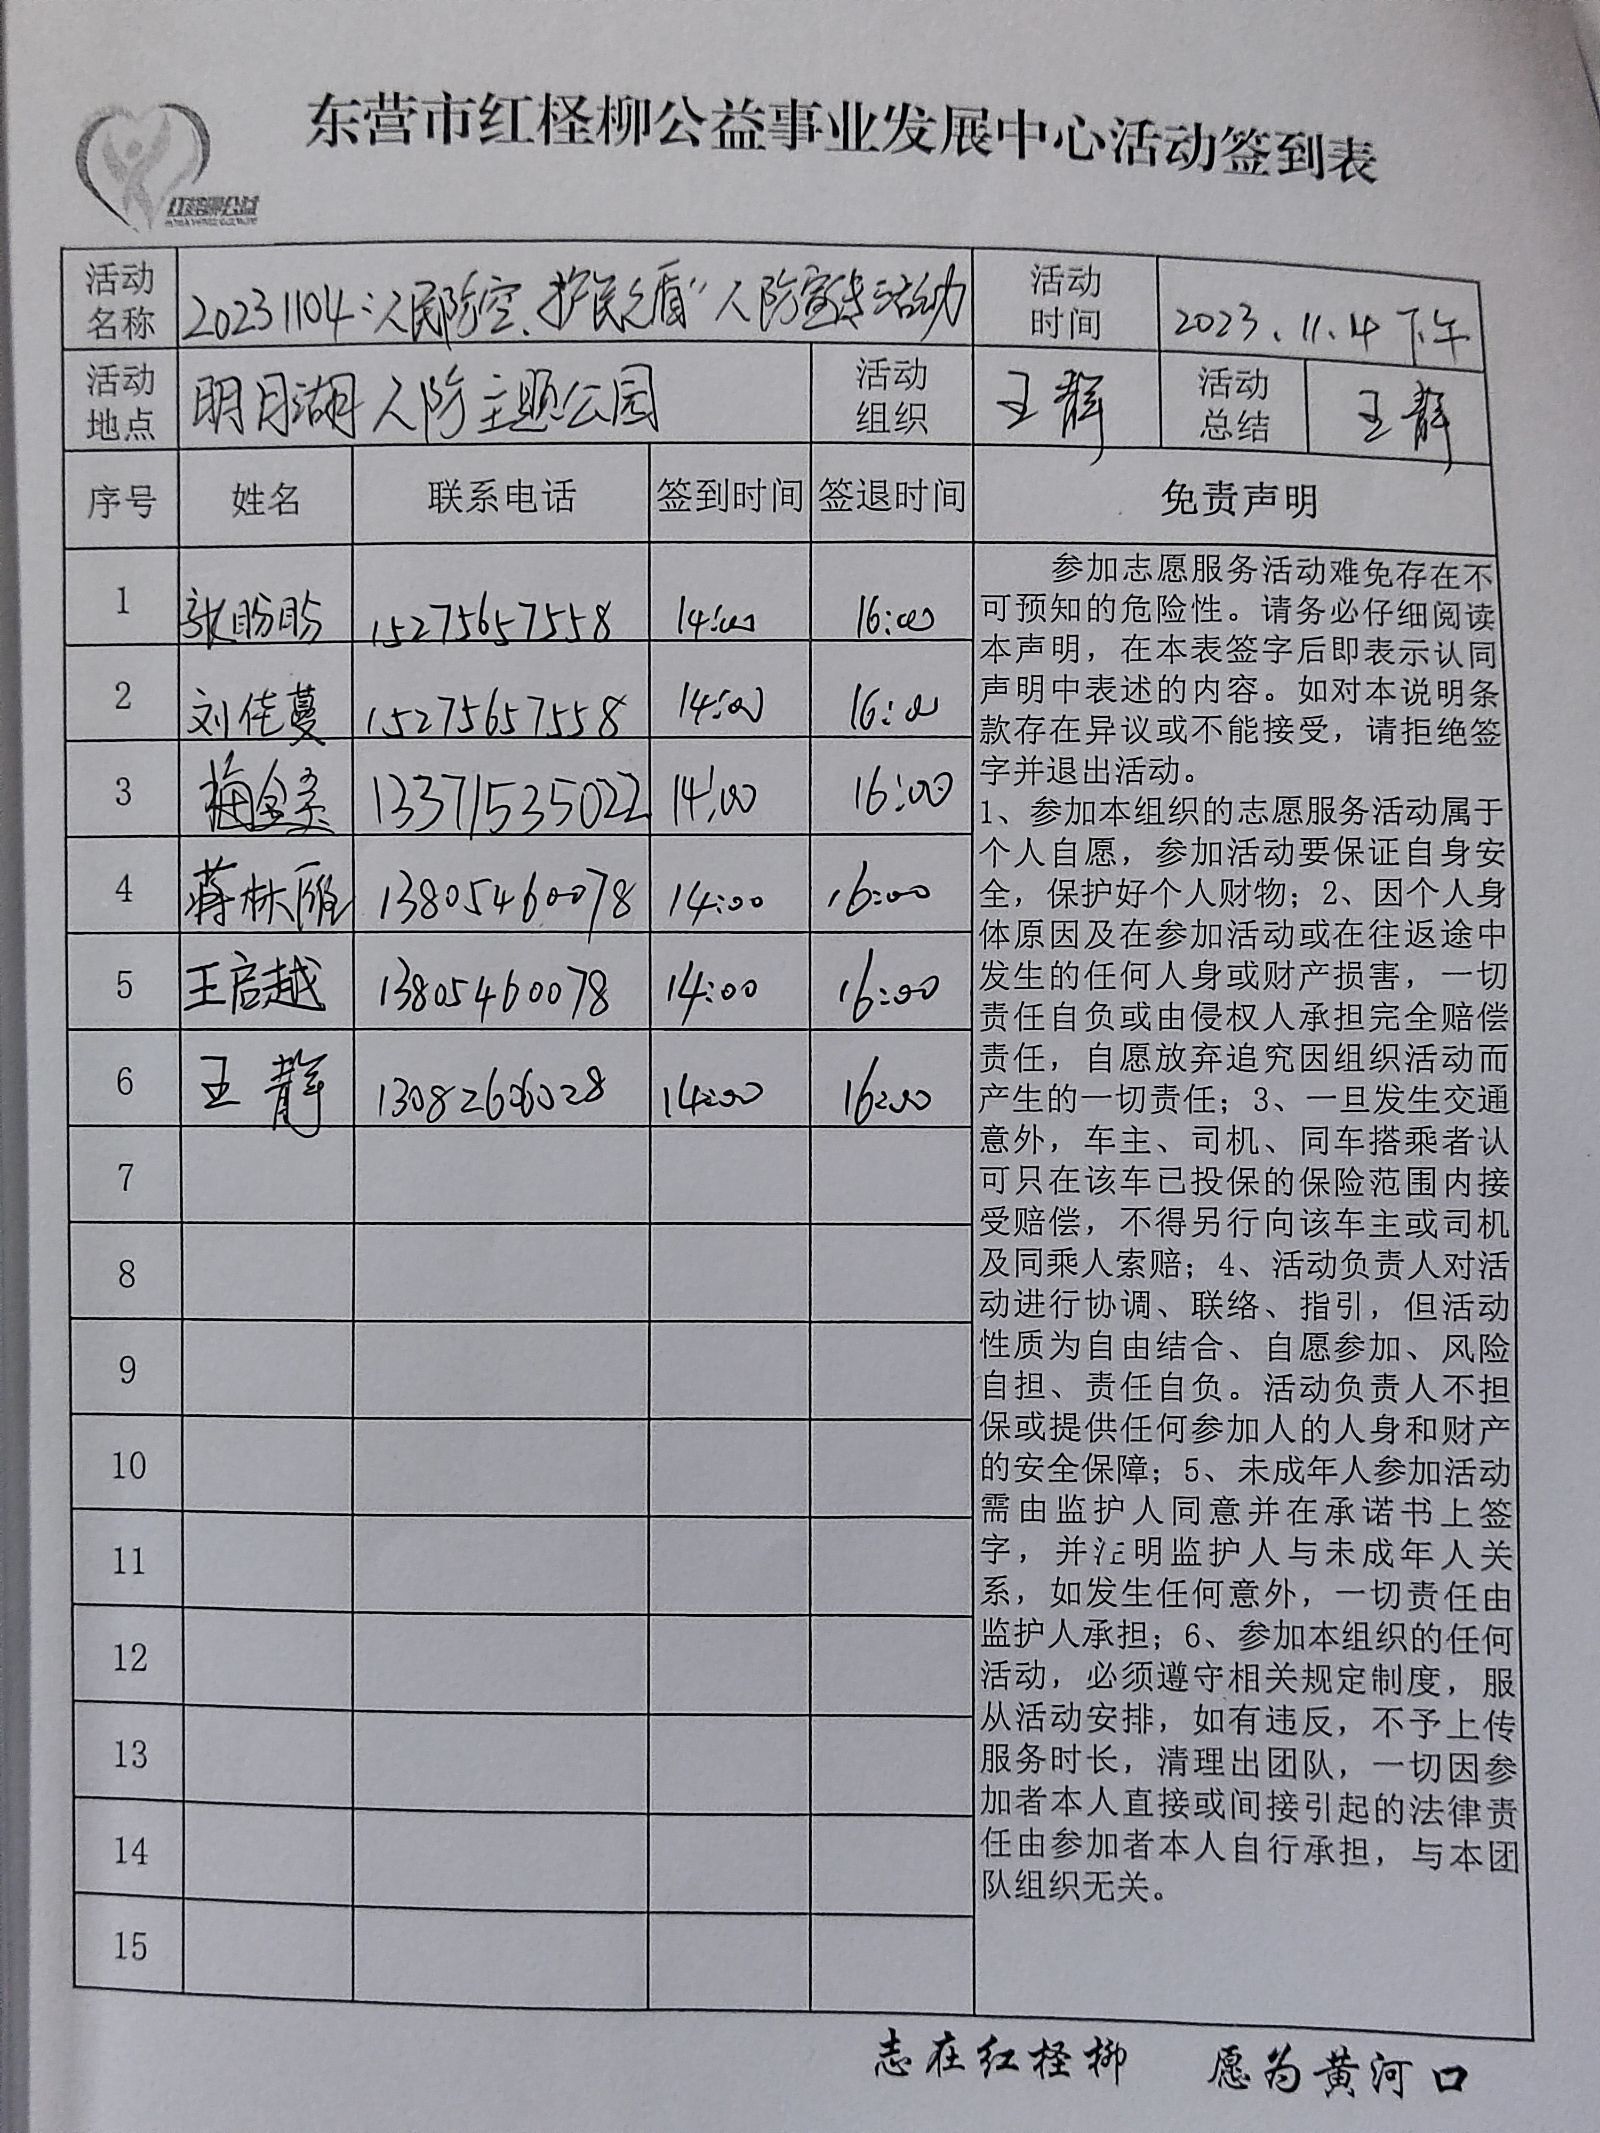 东营市红柽柳公益事业发展中心活动签到表
红柽柳公益
活动名称 20231104“人民防空、护民之盾”人防宣传活动 活动时间 2023.11.4 下午
活动地点 明月湖人防主题公园 活动组织 王静 活动总结 王静
序号 姓名 联系电话 签到时间 签退时间 免责声明
1 张盼盼 15275657558 14:00 16:00
2 刘佳蔓 15275657558 14:00 16:00
3 梅 13371535022 14:00 16:00
4 蒋林雁 13805460078 14:00 16:00
5 王启越 13805460078 14:00 16:00
6 王静 13082606028 14:00 16:00
7
8
9
10
11
12
13
14
15
参加志愿服务活动难免存在不
可预知的危险性。请务必仔细阅读
本声明，在本表签字后即表示认同
声明中表述的内容。如对本说明条
款存在异议或不能接受，请拒绝签
字并退出活动。
1、参加本组织的志愿服务活动属于
个人自愿，参加活动要保证自身安
全，保护好个人财物；2、因个人身
体原因及在参加活动或在往返途中
发生的任何人身或财产损害，一切
责任自负或由侵权人承担完全赔偿
责任，自愿放弃追究因组织活动而
产生的一切责任；3、一旦发生交通
意外，车主、司机、同车搭乘者认
可只在该车已投保的保险范围内接
受赔偿，不得另行向该车主或司机
及同乘人索赔；4、活动负责人对活
动进行协调、联络、指引，但活动
性质为自由结合、自愿参加、风险
自担、责任自负。活动负责人不担
保或提供任何参加人的人身和财产
的安全保障；5、未成年人参加活动
需由监护人同意并在承诺书上签
字，并注明监护人与未成年人关
系，如发生任何意外，一切责任由
监护人承担；6、参加本组织的任何
活动，必须遵守相关规定制度，服
从活动安排，如有违反，不予上传
服务时长，清理出团队，一切因参
加者本人直接或间接引起的法律责
任由参加者本人自行承担，与本团
队组织无关。
志在红柽柳 愿为黄河口